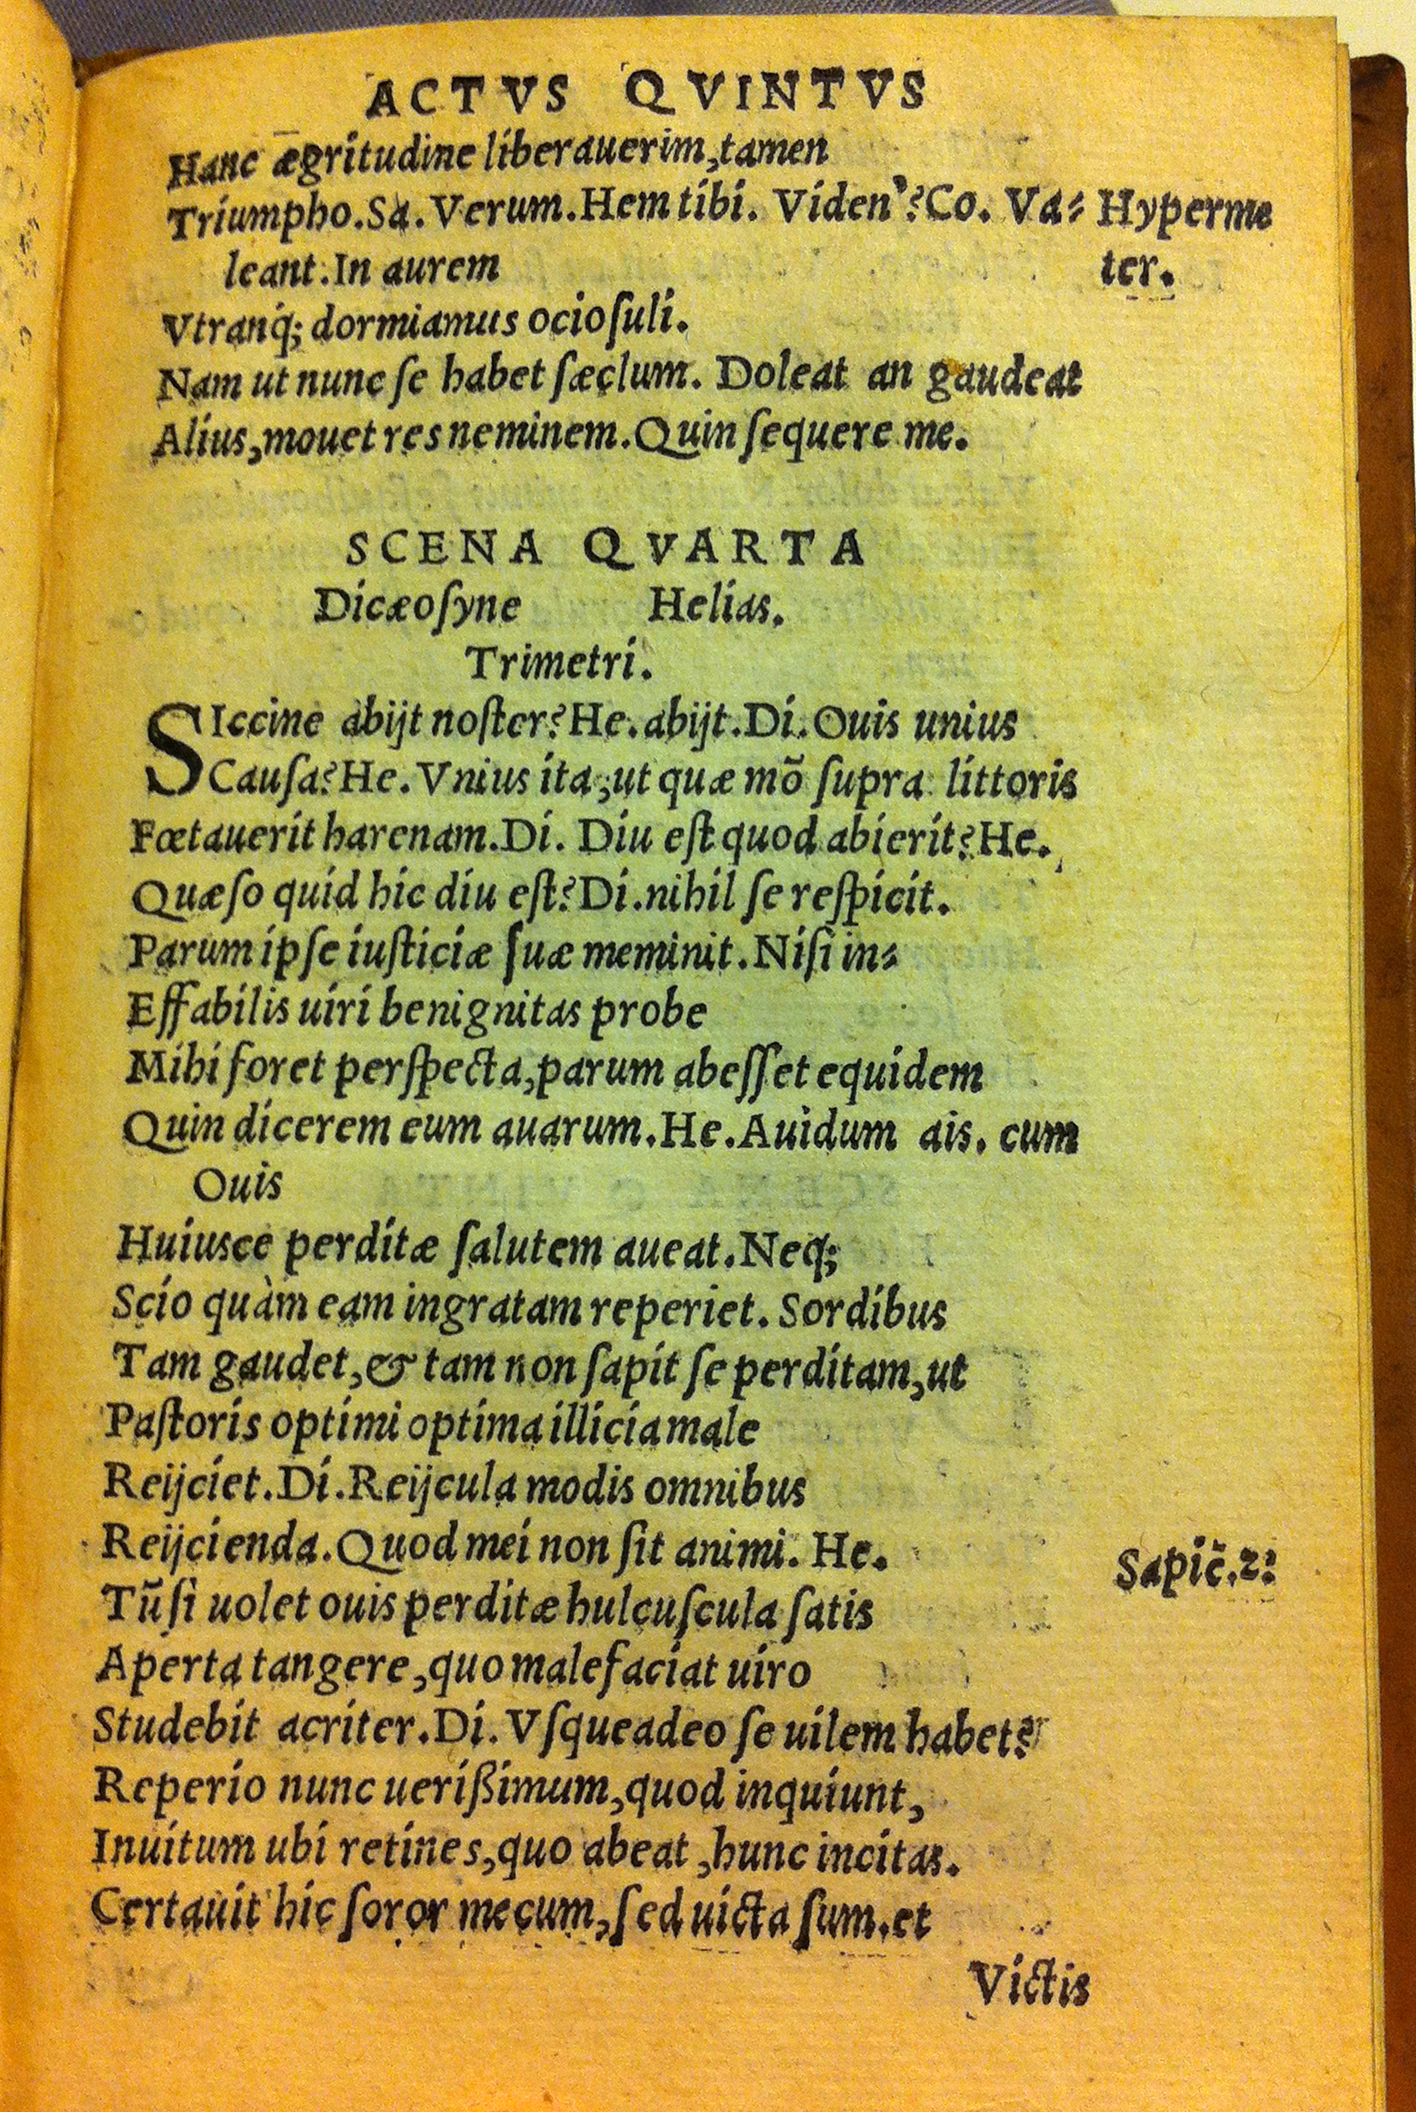 ACTVS QVINTVS
Hanc ægritudine liberauerim, tamen
Triumpho. Sa. Verum. Hem tibi. Viden'? Co. Va⸗ Hyperme
leant. In aurem ter.
Vtranq; dormiamus ociosuli.
Nam ut nunc se habet sæclum. Doleat an gaudeat
Alius, mouet res neminem. Quin sequere me.
SCENA QVARTA
Dicæosyne Helias.
Trimetri.
SIccine abijt noster? He. abijt. Di. Ouis unius
Causa? He. Vnius ita, ut quæ mō supra littoris
Fœtauerit harenam. Di. Diu est quod abierit? He.
Quæso quid hic diu est? Di. nihil se respicit.
Parum ipse iusticiæ suæ meminit. Nisi in⸗
Effabilis uiri benignitas probe
Mihi foret perspecta, parum abesset equidem
Quin dicerem eum auarum. He. Auidum ais. cum
Ouis
Huiusce perditæ salutem aueat. Neq;
Scio quàm eam ingratam reperiet. Sordibus
Tam gaudet, & tam non sapit se perditam, ut
Pastoris optimi optima illicia male
Reijciet. Di. Reijcula modis omnibus
Reijcienda. Quod mei non sit animi. He. Sapic̄. 2:
Tū si uolet ouis perditæ hulcuscula satis
Aperta tangere, quo malefaciat uiro
Studebit acriter. Di. Vsqueadeo se uilem habet?
Reperio nunc uerißimum, quod inquiunt,
Inuitum ubi retines, quo abeat, hunc incitas.
Certauit hic soror mecum, sed uicta sum. et
Victis